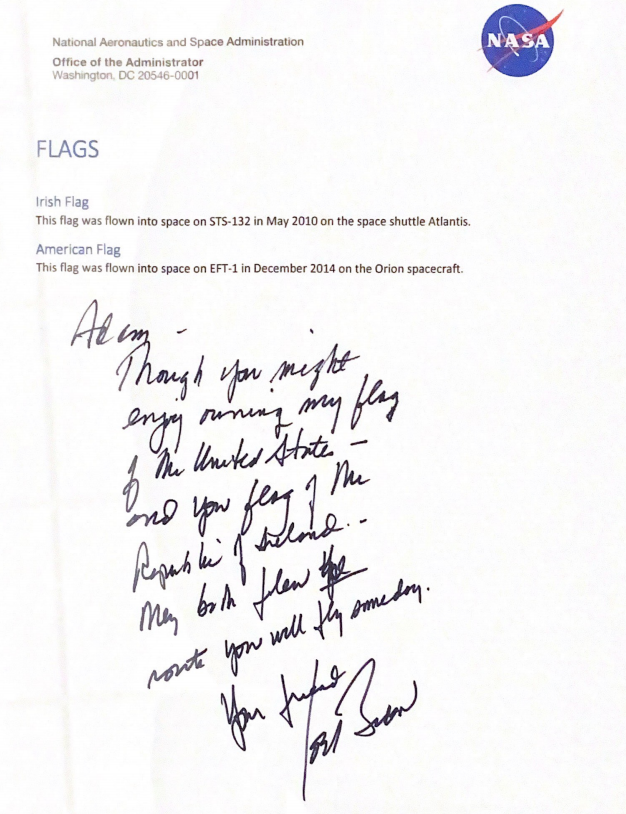 National Aeronautics and Space Administration
Office of the Administrator
Washington, DC 20546-0001
NASA
FLAGS
Irish Flag
This flag was flown into space on STS-132 in May 2010 on the space shuttle Atlantis.
American Flag
This flag was flown into space on EFT-1 in December 2014 on the Orion spacecraft.
Adam -
Though you might
enjoy owning my flag
of the United States -
and you flag of the
Republic of Ireland. -
They both flew the
route you will fly someday.
Your friend